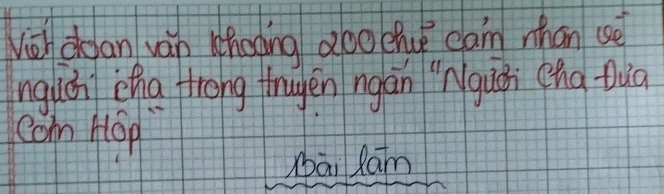 Viết đoạn văn khoảng 200 chữ cảm nhận về
người cha trong truyện ngắn "Người Cha Đưa
Cơm Hộp"
Bài làm